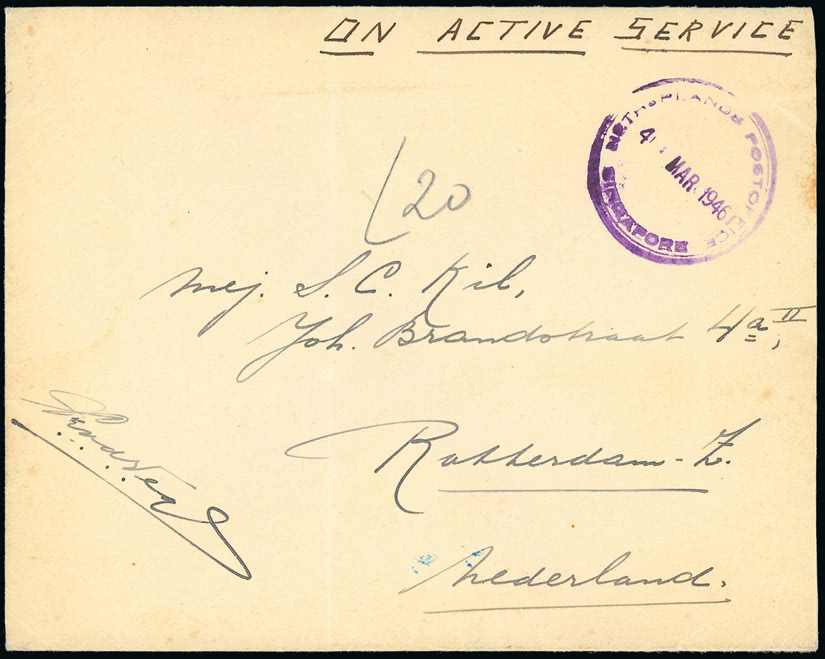 ON ACTIVE SERVICE
NETHERLANDS POSTOFFICE
4 MAR. 1946
SINGAPORE
20
Mej. S. C. Kil,
Joh. Brandstraat 4a II,
Rotterdam-Z.
Nederland.